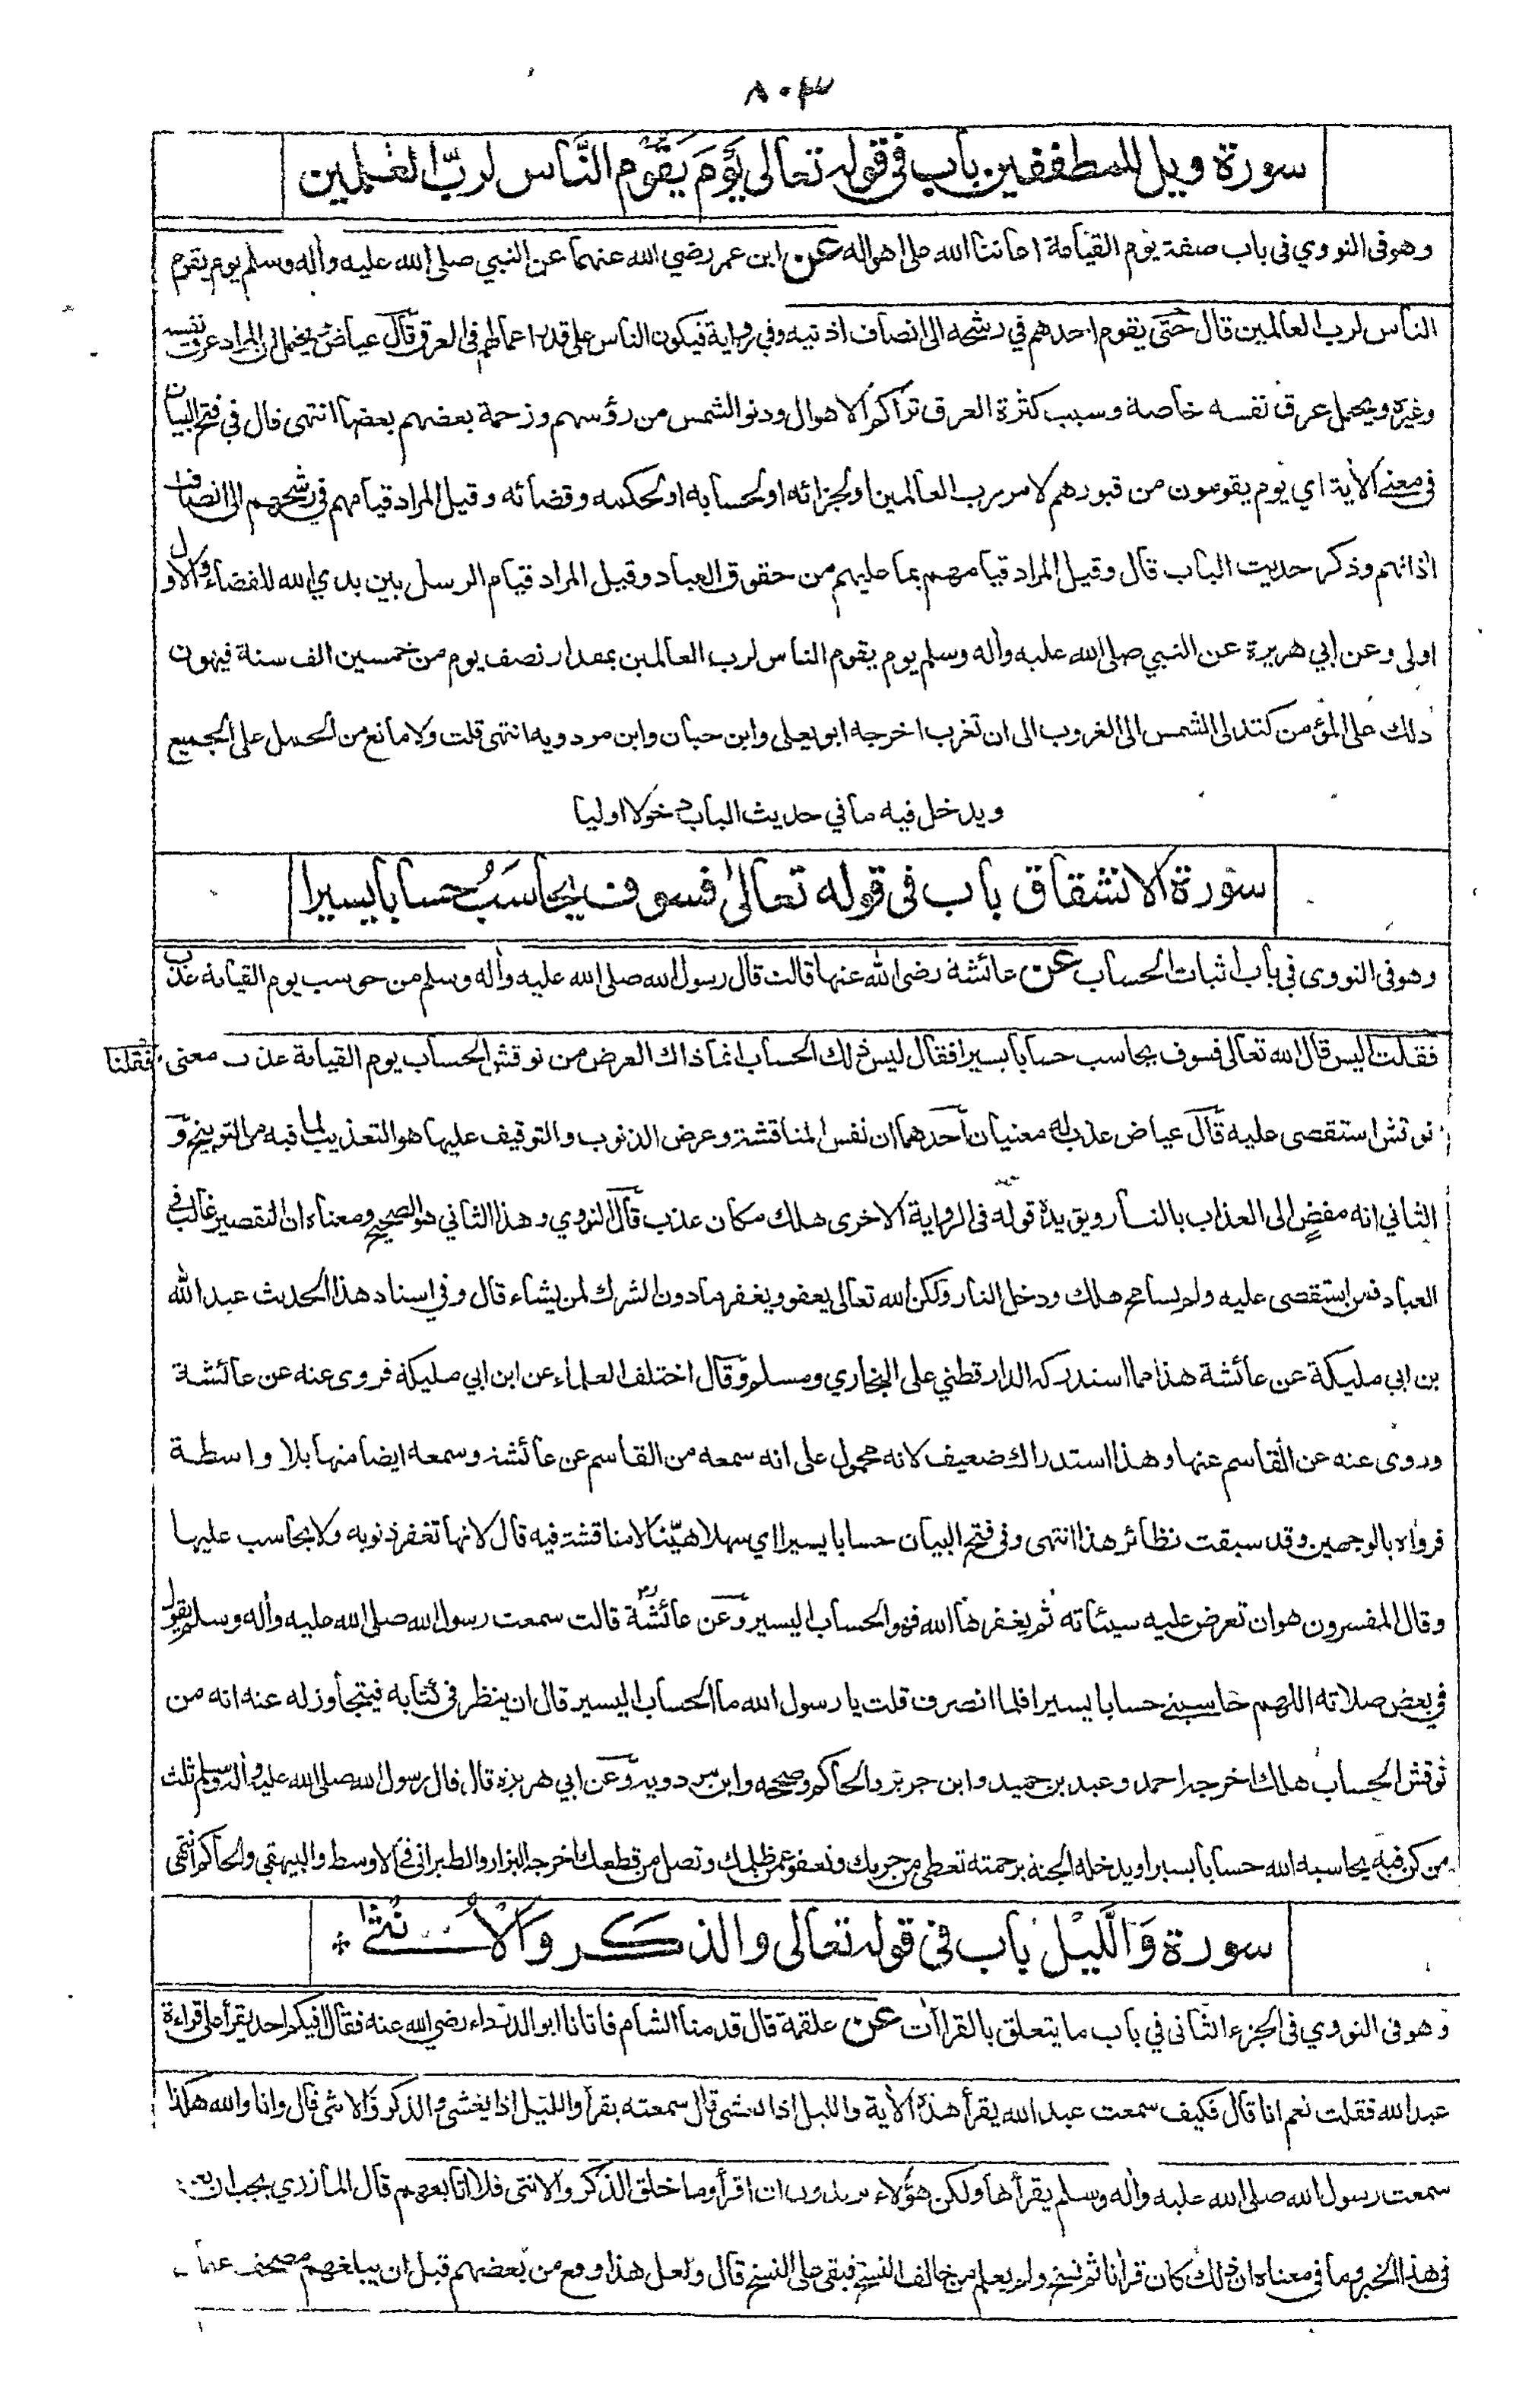 ٨٠٣
سورة ويل للمطففين باب فى قوله تعالى يَوْمَ يَقُوْمُ النَّاس لربّ العٰلمين
وهو فى النووي فى باب صفة يوم القيامة اعاننا الله على اهواله عن ابن عمر رضي الله عنهما عن النبي صلى الله عليه واٰله وسلم يوم يقوم
الناس لرب العالمين قال حتى يقوم احدهم في رشحه الى انصاف اذنيه وفي رواية فيكون الناس على قدر اعمالهم فى العرق قال عياض يحتمل ان المراد عرق نفسه
وغيره ويحتمل عرق نفسه خاصة وسبب كثرة العرق تراكم الاهوال ودنو الشمس من رؤسهم وزحمة بعضهم بعضا انتهى قال في فتح البيان
فى معنى الأية اي يوم يقومون من قبورهم لامر رب العالمين او لجزائه او لحسابه او لحكمه وقضائه وقيل المراد قيامهم في رشحهم الى انصاف
اذانهم وذكر حديث الباب قال وقيل المراد قيامهم بما عليهم من حقوق العباد وقيل المراد قيام الرسل بين يدي الله للقضاء والاول
اولى وعن ابي هريرة عن النبي صلى الله عليه واٰله وسلم يوم يقوم الناس لرب العالمين بمقدار نصف يوم من خمسين الف سنة فيهون
ذلك على المؤمن كتدلى الشمس الى الغروب الى ان تغرب اخرجه ابو يعلى وابن حبان وابن مردويه انتهى قلت ولا مانع من الحمل على الجميع
ويدخل فيه ما في حديث الباب دخولا اوليا
سورة الانشقاق باب فى قوله تعالىٰ فسوف يحاسَبُ حسابا يسيرا
وهو فى النووى في باب اثبات الحساب عن عائشة رضى الله عنها قالت قال رسول الله صلى الله عليه واٰله وسلم من حوسب يوم القيامة عذب
فقلت اليس قال الله تعالى فسوف يحاسب حسابا يسيرا فقال ليس ذلك الحساب انما ذاك العرض من نوقش الحساب يوم القيامة عذب معنى فقلنا
نوقش استقصى عليه قال عياض عذب له معنيان احدهما ان نفس المناقشة وعرض الذنوب والتوقيف عليها هو التعذيب لما فيه من التوبيخ و
الثاني انه مفضٍ الى العذاب بالنار ويؤيده قوله فى الرواية الاخرى هلك مكان عذب قال النووي وهذا الثاني هو الصحيح ومعناه ان التقصير غالب في
العباد فمن استقصى عليه ولم يسامح هلك ودخل النار ولكن الله تعالى يعفو ويغفر ما دون الشرك لمن يشاء قال وفي اسناد هذا الحديث عبد الله
بن ابي مليكة عن عائشة هذا مما استدركه الدارقطني على البخاري ومسلم وقال اختلف العلماء عن ابن ابي مليكة فروى عنه عن عائشة
وروى عنه عن القاسم عنها وهذا استدراك ضعيف لانه محمول على انه سمعه من القاسم عن عائشة وسمعه ايضا منها بلا واسطة
فرواه بالوجهين وقد سبقت نظائر هذا انتهى وفى فتح البيان حسابا يسيرا اي سهلا هيّنا لا مناقشة فيه قال لانها تغفر ذنوبه ولا يحاسب عليها
وقال المفسرون هو ان تعرض عليه سيئاته ثم يغفرها الله فهو الحساب اليسير وعن عائشة رض قالت سمعت رسول الله صلى الله عليه واٰله وسلم يقول
في بعض صلاته اللهم حاسبني حسابا يسيرا فلما انصرف قلت يا رسول الله ما الحساب اليسير قال ان ينظر فى كتابه فيتجاوز له عنه انه من
نوقش الحساب هلك اخرجه احمد وعبد بن حميد وابن جرير والحاكم وصححه وابن مردويه وعن ابي هريرة قال قال رسول الله صلى الله عليه واٰله وسلم ثلث
من كن فيه يحاسبه الله حسابا يسيرا ويدخله الجنة برحمته تعطي من حرمك وتعفو عمن ظلمك وتصل من قطعك اخرجه البزار والطبرانى فى الاوسط والبيهقي والحاكم انتهى
سورة وَالَّيْل باب فى قوله تعالى والذكر وَالْاُنْثٰى
وهو فى النووي فى الجزء الثانى في باب ما يتعلق بالقراآت عن علقمة قال قدمنا الشام فاتانا ابو الدرداء رضي الله عنه فقال افيكم احد يقرأ على قراءة
عبد الله فقلت نعم انا قال فكيف سمعت عبد الله يقرأ هذه الأية والليل اذا يغشى قال سمعته يقرأ والليل اذا يغشى والذكر والانثى قال وانا والله هكذا
سمعت رسول الله صلى الله عليه واٰله وسلم يقرأها ولكن هؤلاء يريدون ان اقرأ وما خلق الذكر والانثى فلا اتابعهم قال المازري يجب ان
فى هذا الخبر وما فى معناه ان ذلك كان قرأنا ثم نسخ ولم يعلم من خالف النسخ فبقى على النسخ قال ولعل هذا وقع من بعضهم قبل ان يبلغهم مصحف